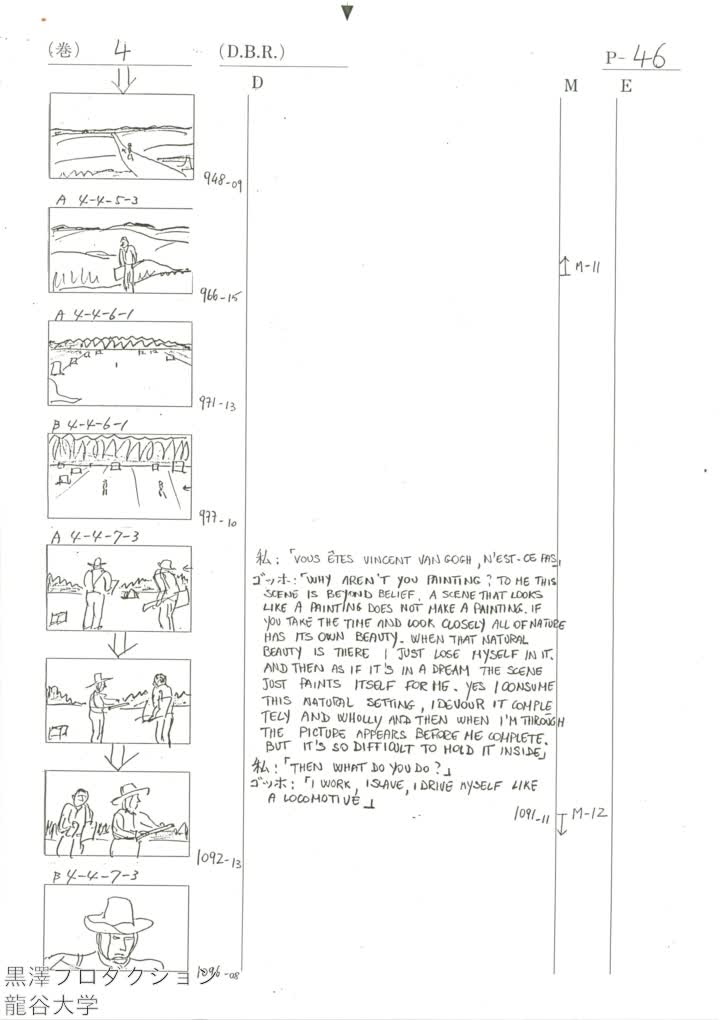 (巻) 4 (D.B.R.) P-46
D M E
948-09
A 4-4-5-3
M-11
966-15
A 4-4-6-1
971-13
B 4-4-6-1
977-10
A 4-4-7-3
私:「VOUS ÊTES VINCENT VAN GOGH, N'EST-CE PAS」
ゴッホ:「WHY AREN'T YOU PAINTING? TO ME THIS
SCENE IS BEYOND BELIEF. A SCENE THAT LOOKS
LIKE A PAINTING DOES NOT MAKE A PAINTING. IF
YOU TAKE THE TIME AND LOOK CLOSELY ALL OF NATURE
HAS ITS OWN BEAUTY. WHEN THAT NATURAL
BEAUTY IS THERE I JUST LOSE MYSELF IN IT.
AND THEN AS IF IT'S IN A DREAM THE SCENE
JUST PAINTS ITSELF FOR ME. YES I CONSUME
THIS NATURAL SETTING, I DEVOUR IT COMPLE
TELY AND WHOLLY AND THEN WHEN I'M THROUGH
THE PICTURE APPEARS BEFORE ME COMPLETE.
BUT IT'S SO DIFFICULT TO HOLD IT INSIDE」
私:「THEN WHAT DO YOU DO?」
ゴッホ:「I WORK, I SLAVE, I DRIVE MYSELF LIKE
A LOCOMOTIVE」
1091-11 M-12
1092-13
B 4-4-7-3
1096-08
黒澤プロダクション
龍谷大学